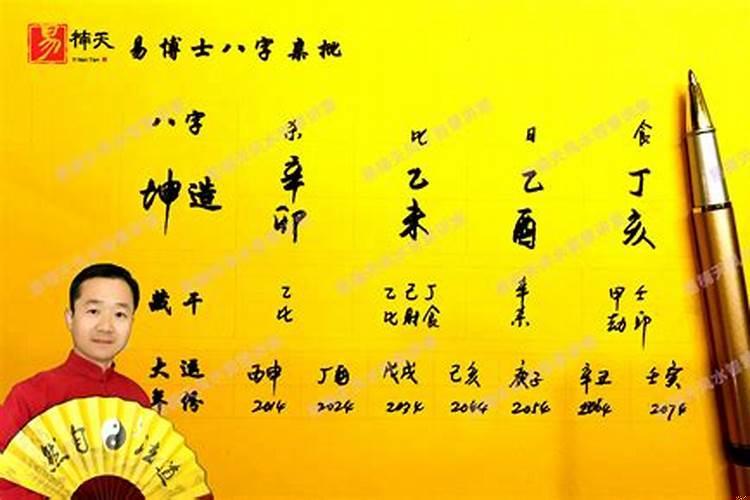 易 楠天 易博士八字亲批
八字 杀 比 日 食
坤造 辛 乙 乙 丁
卯 未 酉 亥
藏干 乙 乙己丁 辛 甲壬
比 比财食 杀 劫印
大运 丙申 丁酉 戊戌 己亥 庚子 辛丑 壬寅
年份 2014 2024 2034 2044 2054 2064 2074
然自法道